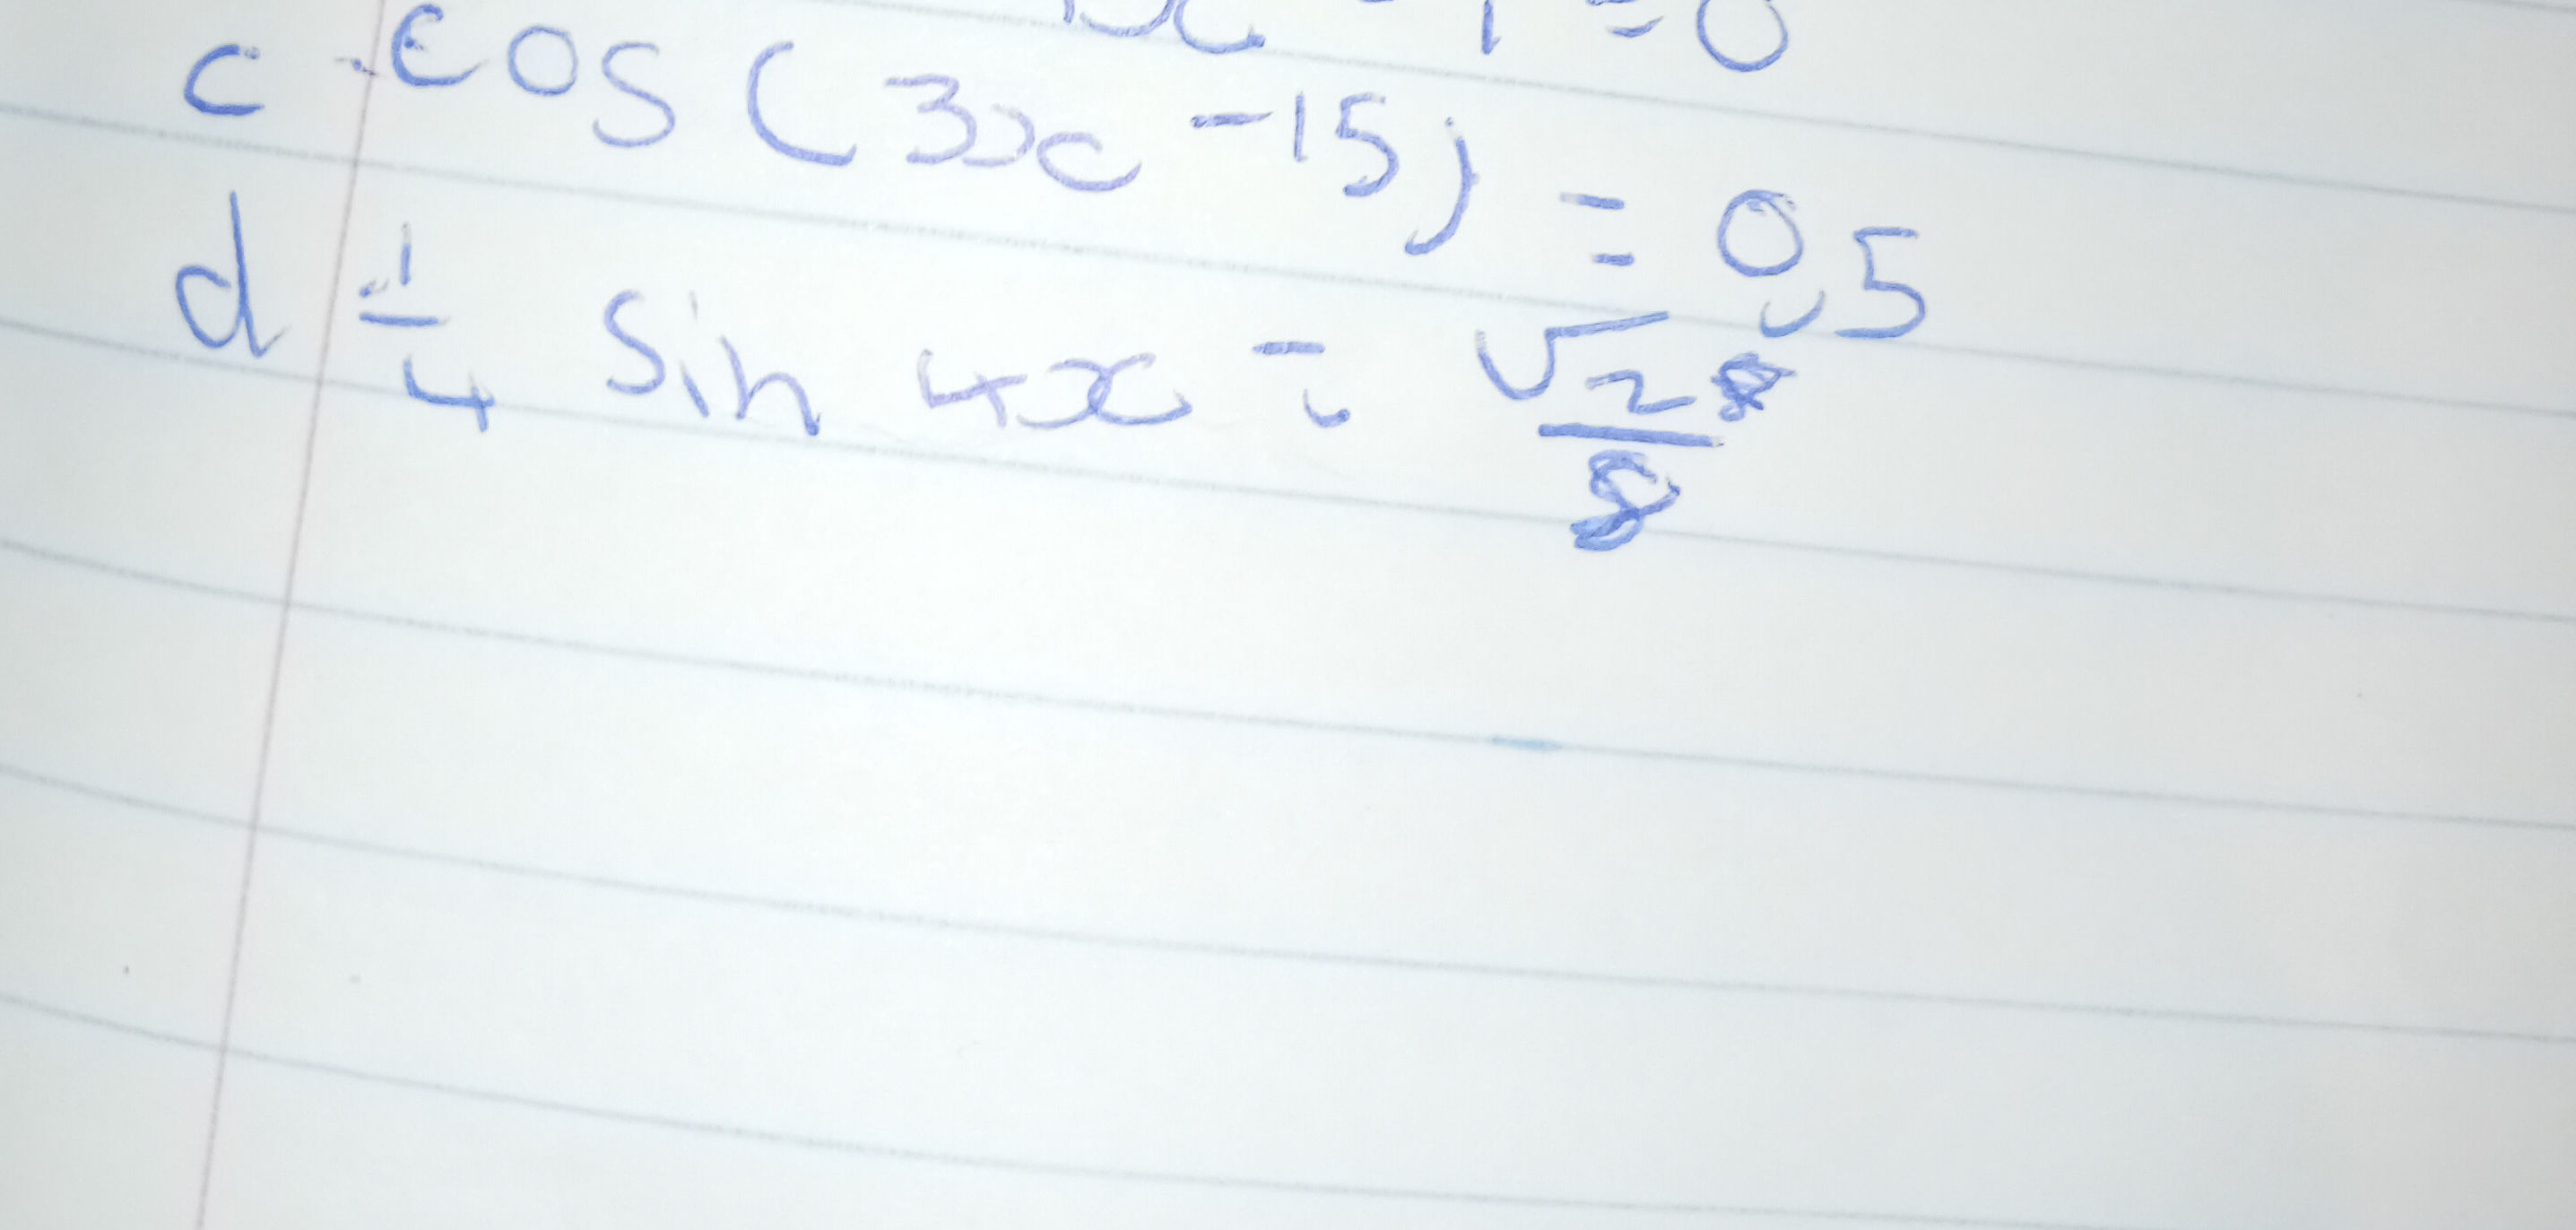 x - 1 = 0
c cos (3x - 15) = 0,5
d 1/4 sin 4x = √2/8